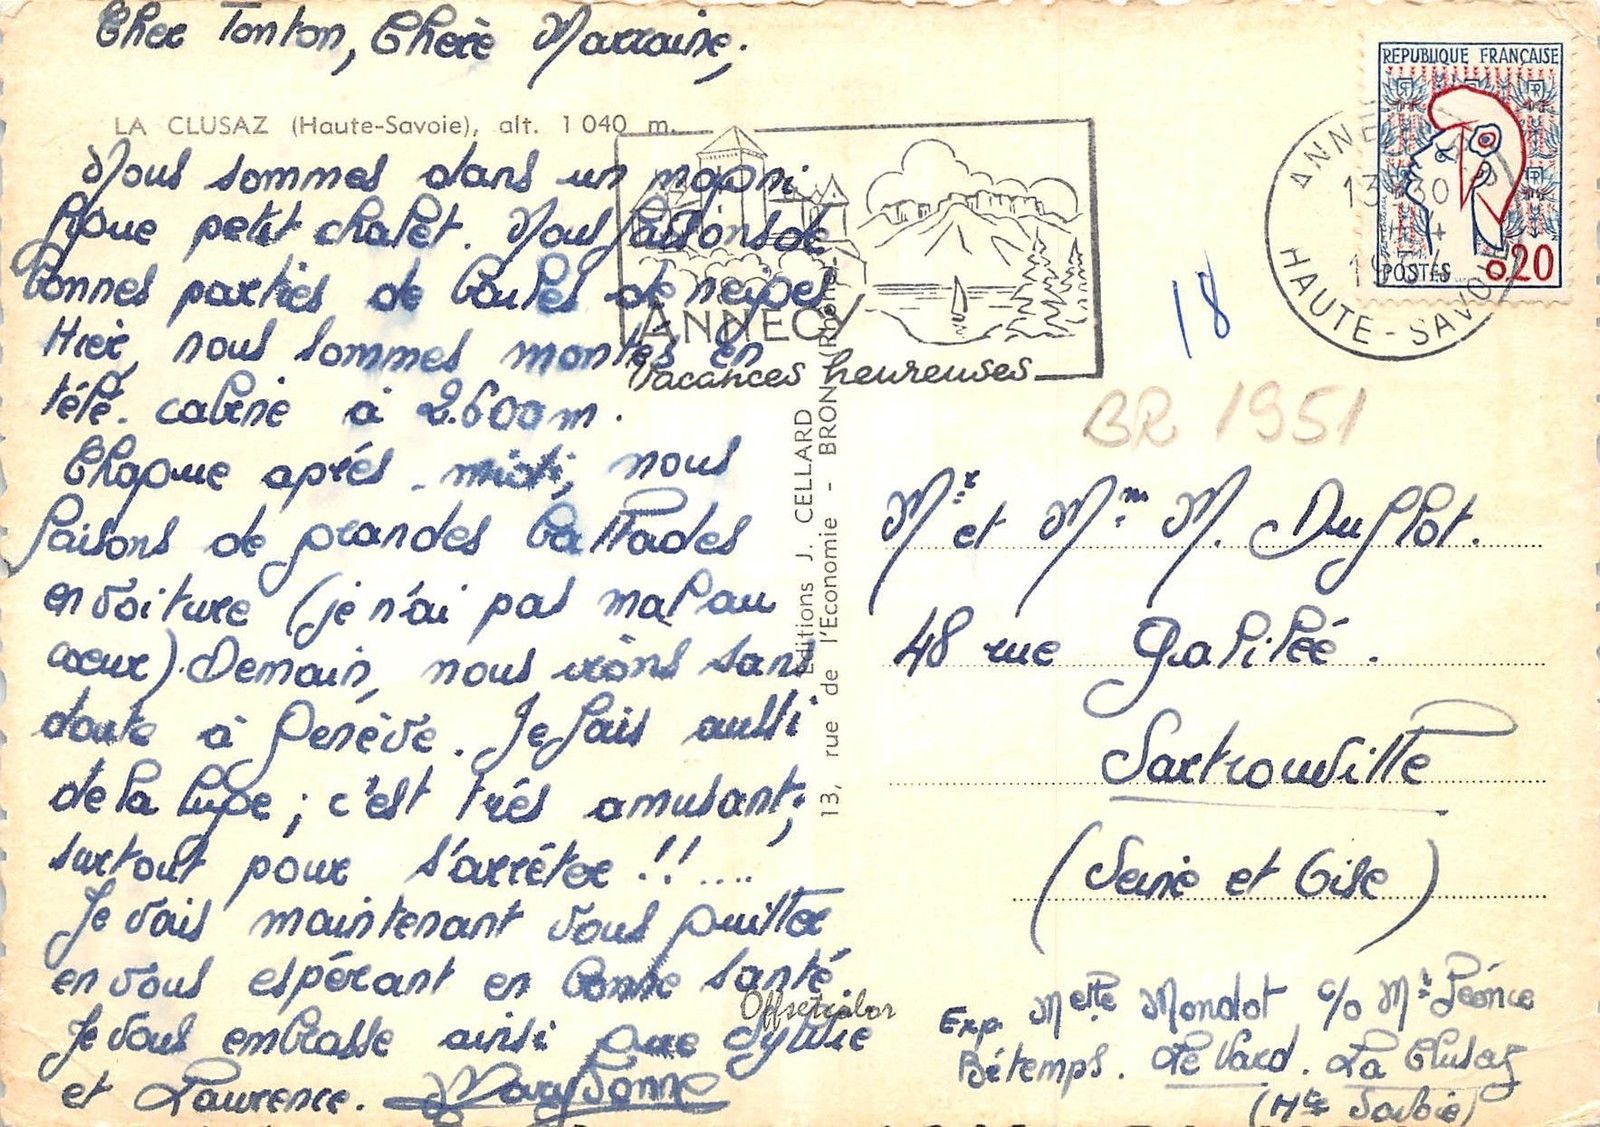 Cher Tonton, Chère Marraine,
LA CLUSAZ (Haute-Savoie), alt. 1 040 m.
Nous sommes dans un magni
fique petit chalet. Nous faisons de
bonnes parties de boules de neiges
Hier, nous sommes montés en
télé. cabine à 2.600m.
Chaque après-midi, nous
faisons de grandes ballades
en voiture (je n'ai pas mal au
coeur). Demain, nous irons sans
doute à Genève. Je fais aussi
de la luge ; c'est très amusant,
surtout pour s'arrêter !!....
Je vais maintenant vous quitter
en vous espérant en bonne santé
Je vous embrasse ainsi que Sylvie
et Laurence. MaryVonne
ANNECY
Vacances heureuses
Editions J. CELLARD
13, rue de l'Economie - BRON (Rhône)
Offsetcolor
REPUBLIQUE FRANÇAISE
POSTES 0,20
ANNECY
13 30
HAUTE-SAVOIE
18
BR 1951
Mr et Mme M. Duflot.
48 rue Galilée.
Sartrouville
(Seine et Oise)
Exp. Melle Mondot c/o Mr Léonce
Bétemps. Le Vard. La Clusaz
(Hte Savoie)